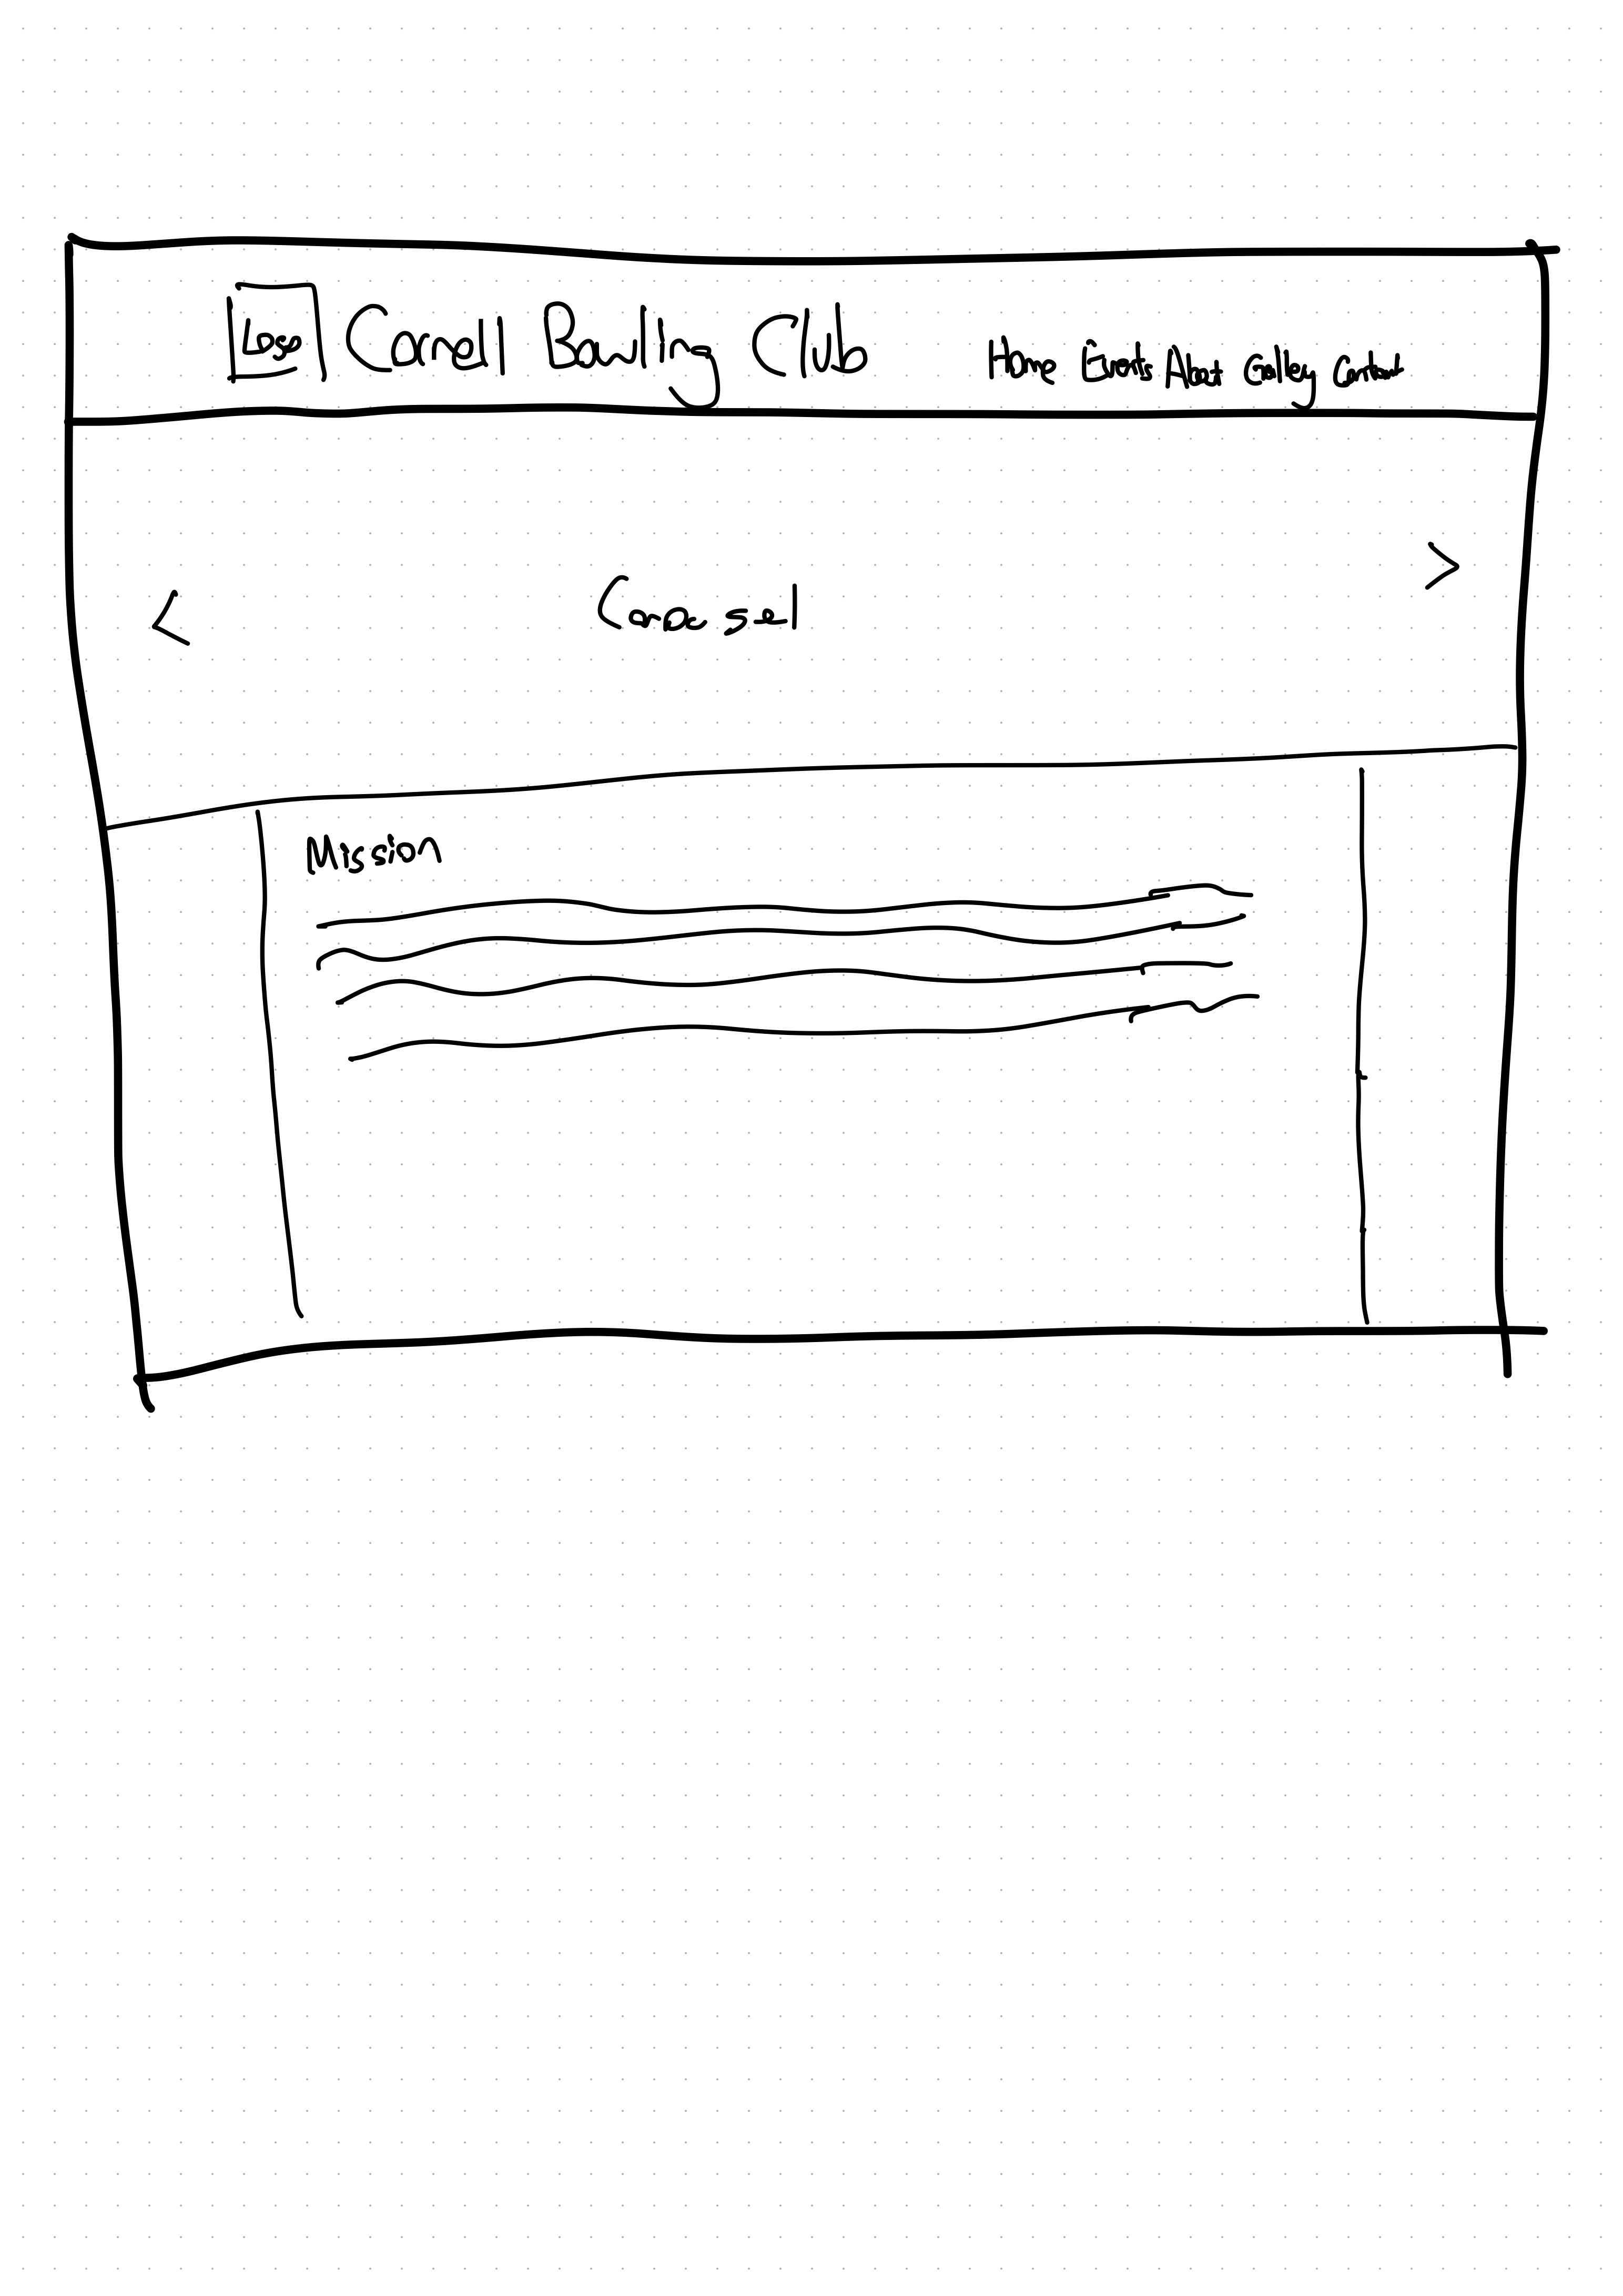 Logo Cornell Bowling Club Home Events About Gallery Contact
< Carousel >
Mission